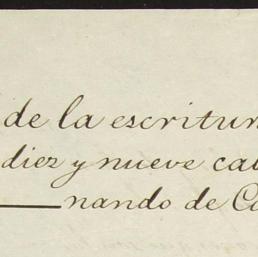 de la escritur
diez y nueve ca
nando de C